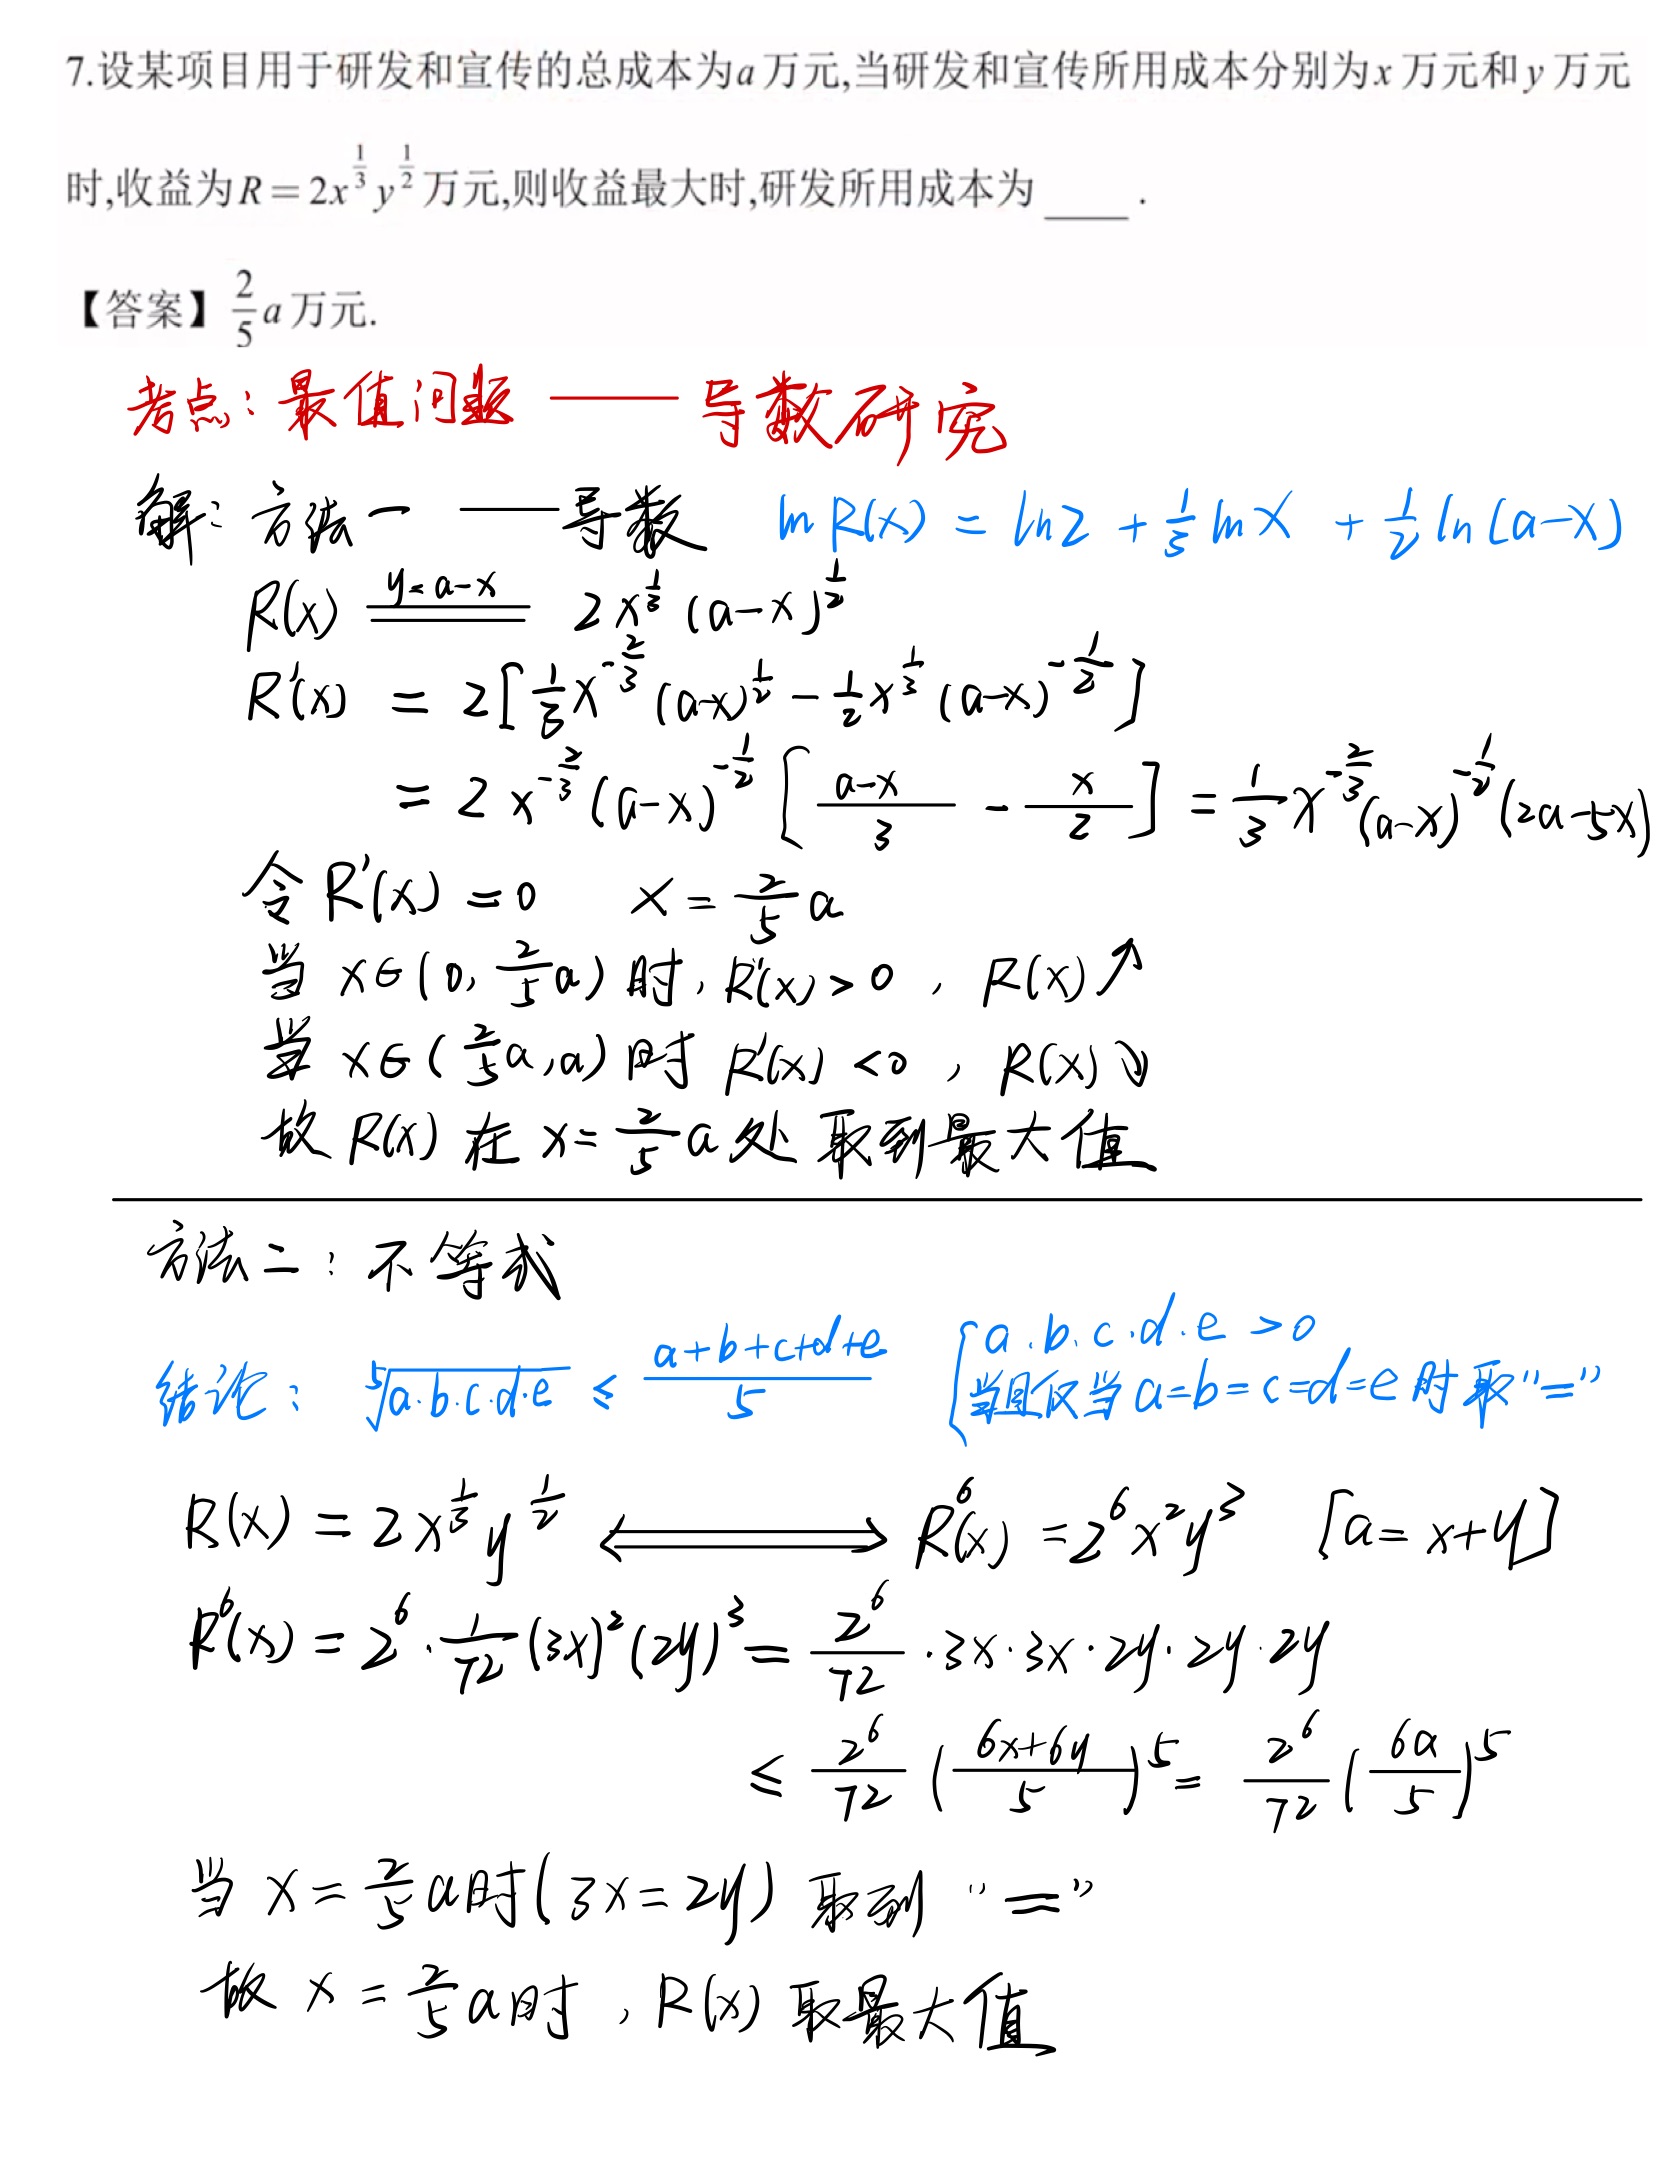 7.设某项目用于研发和宣传的总成本为a万元,当研发和宣传所用成本分别为x万元和y万元
时,收益为R=2x^{\frac{1}{3}}y^{\frac{1}{2}}万元,则收益最大时,研发所用成本为____.
【答案】\frac{2}{5}a万元.
考点:最值问题——导数研究
解:方法一——导数 ln R(x) = ln2 + \frac{1}{3}ln x + \frac{1}{2}ln(a-x)
R(x) \xlongequal{y=a-x} 2x^{\frac{1}{3}}(a-x)^{\frac{1}{2}}
R'(x) = 2[\frac{1}{3}x^{-\frac{2}{3}}(a-x)^{\frac{1}{2}} - \frac{1}{2}x^{\frac{1}{3}}(a-x)^{-\frac{1}{2}}]
= 2x^{-\frac{2}{3}}(a-x)^{-\frac{1}{2}}[\frac{a-x}{3} - \frac{x}{2}] = \frac{1}{3}x^{-\frac{2}{3}}(a-x)^{-\frac{1}{2}}(2a-5x)
令R'(x)=0 x=\frac{2}{5}a
当x∈(0,\frac{2}{5}a)时,R'(x)>0,R(x)↗
当x∈(\frac{2}{5}a,a)时R'(x)<0,R(x)↘
故R(x)在x=\frac{2}{5}a处取到最大值
方法二:不等式
结论:\sqrt[5]{a·b·c·d·e} ≤ \frac{a+b+c+d+e}{5} { a.b.c.d.e >0
当且仅当a=b=c=d=e时取"="
R(x)=2x^{\frac{1}{3}}y^{\frac{1}{2}} ⟺ R^6(x)=2^6x^2y^3 [a=x+y]
R^6(x)=2^6·\frac{1}{72}(3x)^2(2y)^3=\frac{2^6}{72}·3x·3x·2y·2y·2y
≤ \frac{2^6}{72}(\frac{6x+6y}{5})^5 = \frac{2^6}{72}(\frac{6a}{5})^5
当x=\frac{2}{5}a时(3x=2y)取到"="
故x=\frac{2}{5}a时,R(x)取最大值